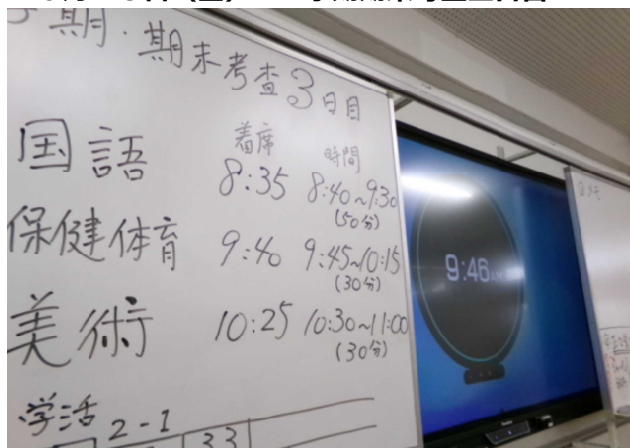 期・期末考査3日目
着席 時間
国語 8:35 8:40~9:30
(50分)
保健体育 9:40 9:45~10:15
(30分)
美術 10:25 10:30~11:00
(30分)
学活
2-1
33
9:46 AM